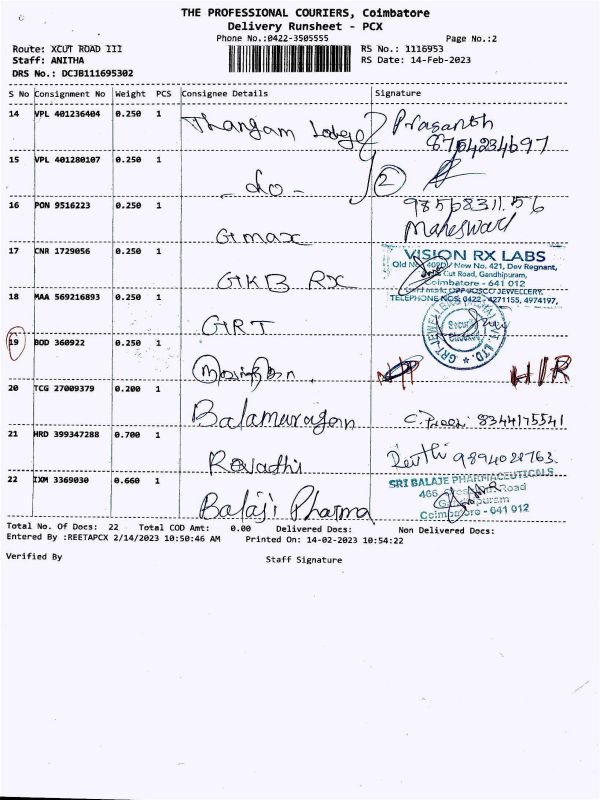 THE PROFESSIONAL COURIERS, Coimbatore
Delivery Runsheet - PCX
Phone No.:0422-3505555
Page No.:2
Route: XCUT ROAD III
RS No.: 1116953
Staff: ANITHA
RS Date: 14-Feb-2023
DRS No.: DCJB111695302
S No Consignment No Weight PCS Consignee Details Signature
14 VPL 401236404 0.250 1 Thangam Lodge Prasanth
15 VPL 401280107 0.250 1 - do - 2
16 PON 9516223 0.250 1 Gmax
Maheswari
17 CNR 1729056 0.250 1 GKB RX
VISION RX LABS
New No. 421, Dev Regnant,
Cut Road, Gandhipuram,
Coimbatore - 641 012
JOSCO JEWELLERY,
TELEPHONE NOS: 0422 - 4271155, 4974197,
18 MAA 569216893 0.250 1 GRT
19 BOD 360922 0.250 1 H/R
20 TCG 27009379 0.200 1 Balamuragan 8344175541
21 HRD 399347288 0.700 1 Revathi 9894028763
22 IXM 3369030 0.660 1 Balaji Pharma
SRI BALAJE PHARMACEUTICALS
466 Road
Coimbatore - 641 012
Total No. Of Docs: 22 Total COD Amt: 0.00 Delivered Docs: Non Delivered Docs:
Entered By :REETAPCX 2/14/2023 10:50:46 AM Printed On: 14-02-2023 10:54:22
Verified By Staff Signature